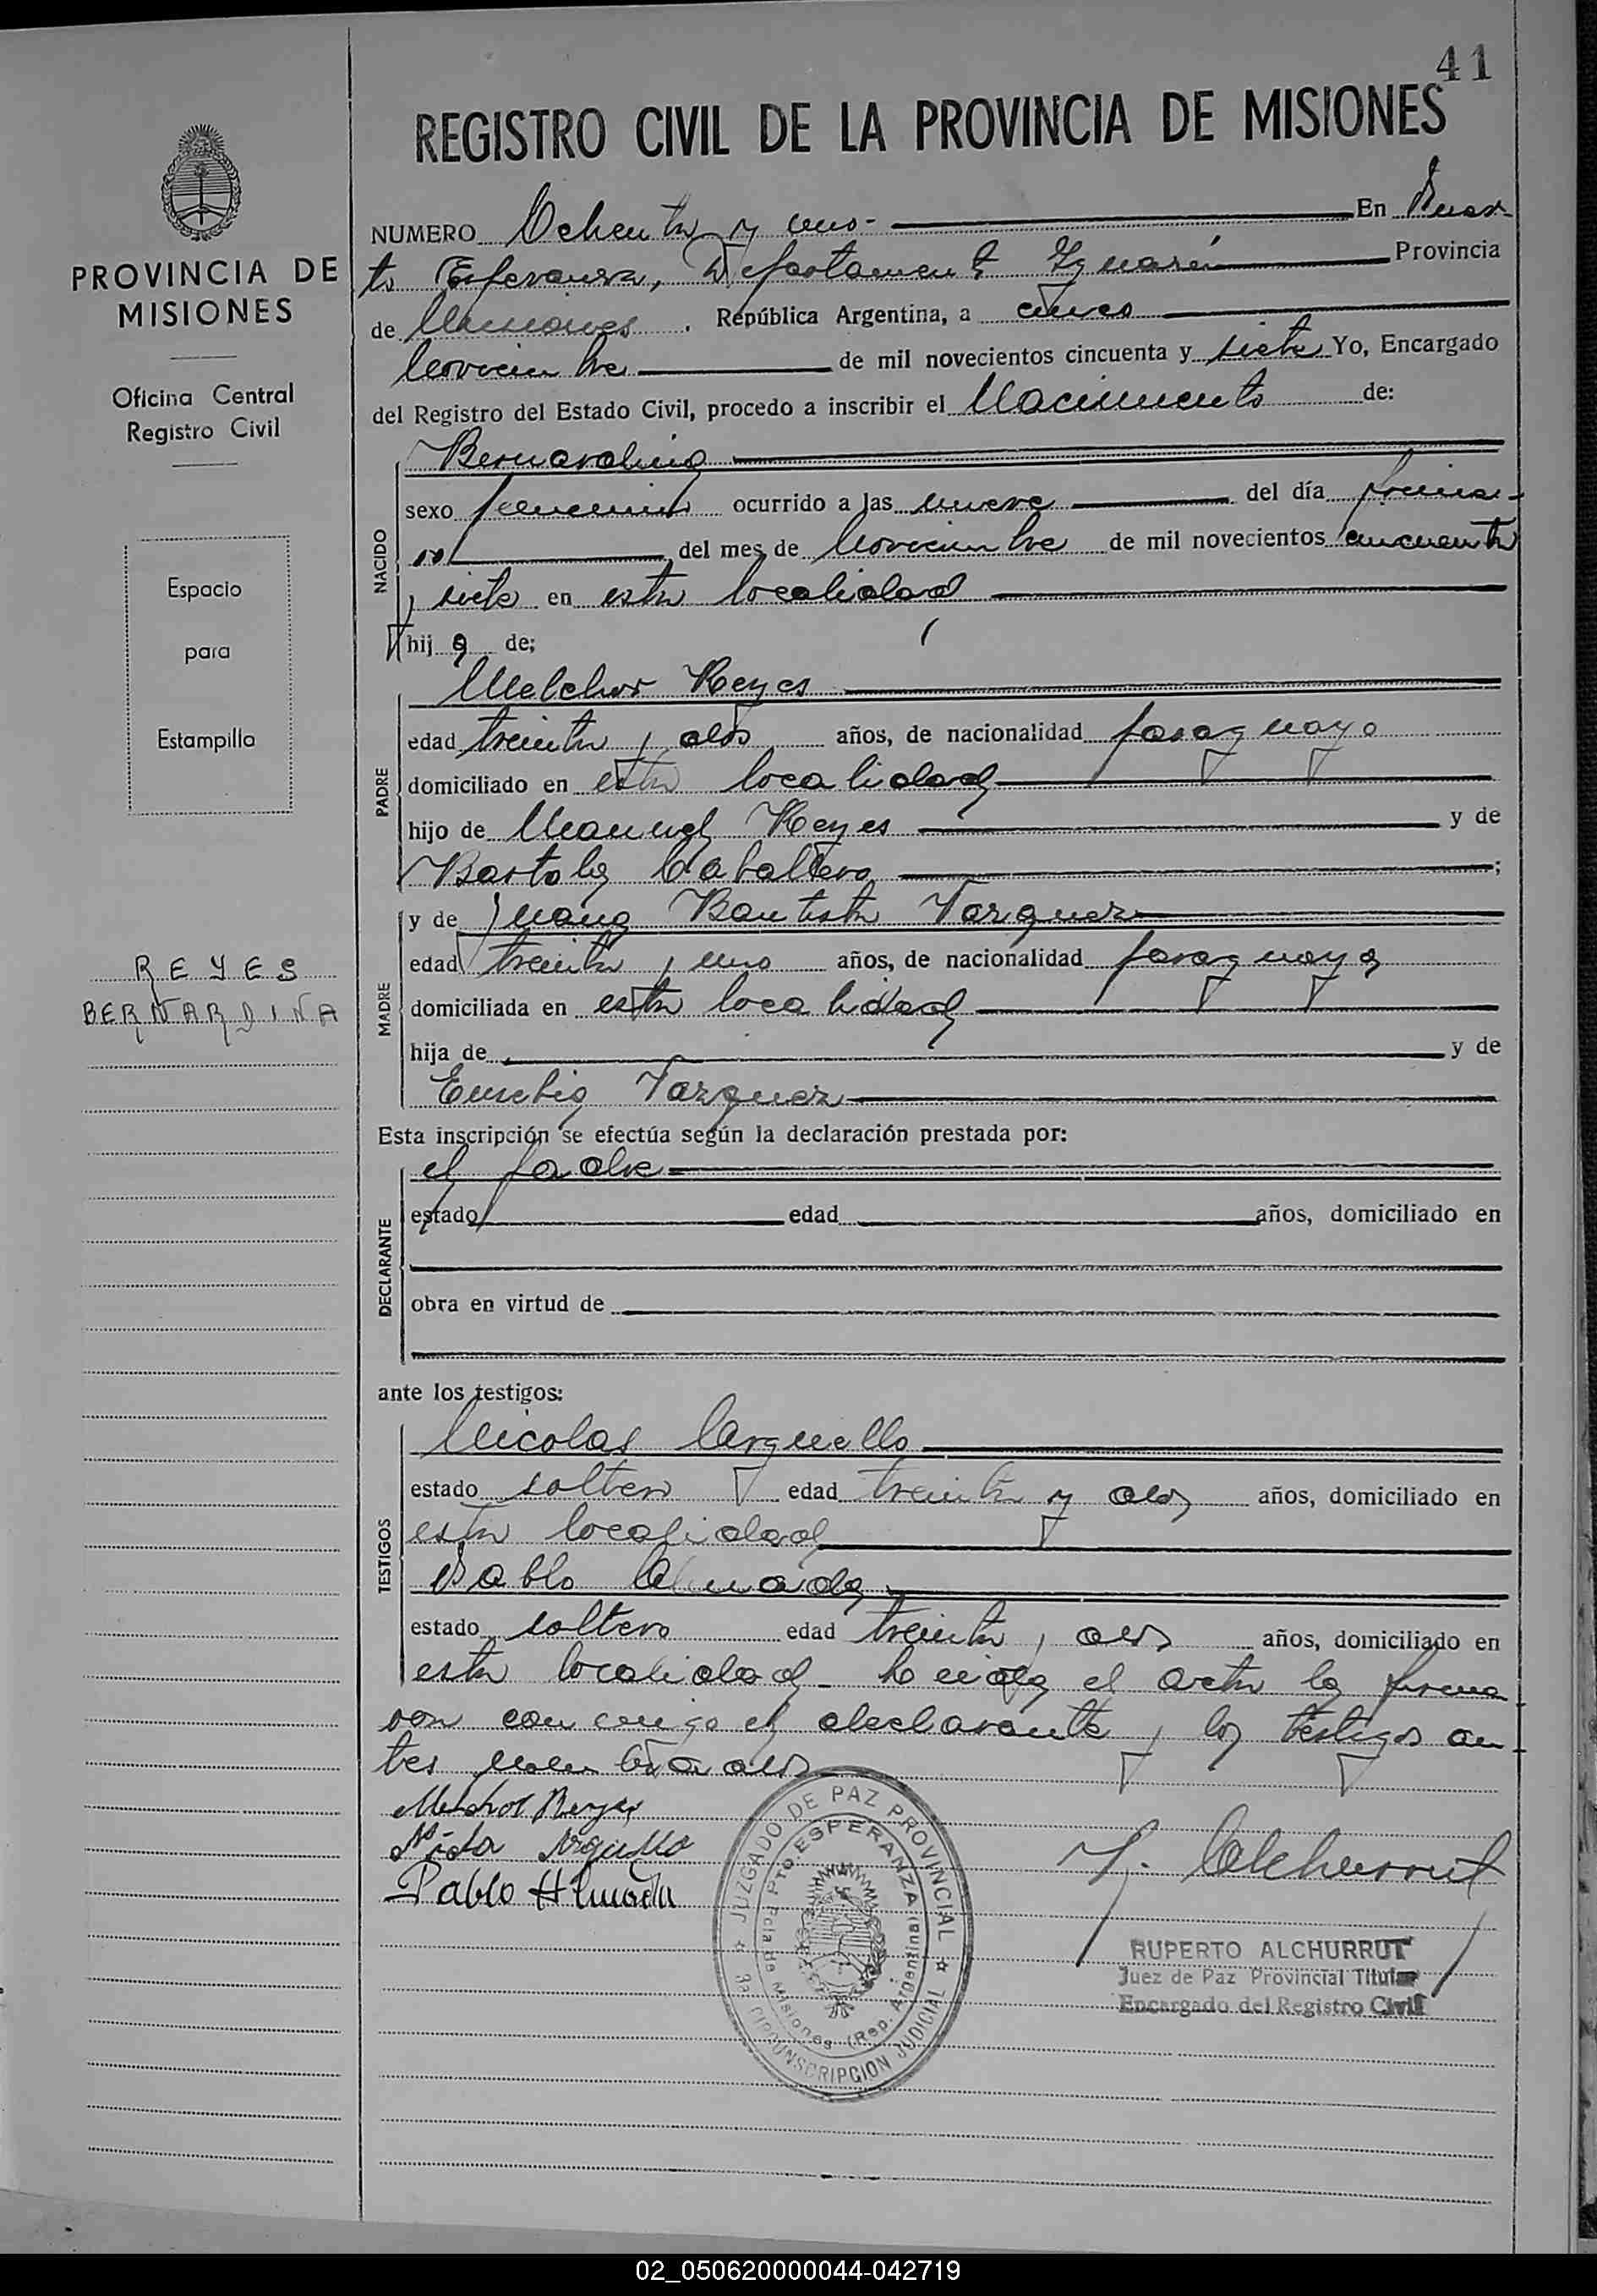 41
REGISTRO CIVIL DE LA PROVINCIA DE MISIONES
PROVINCIA DE
MISIONES
Oficina Central
Registro Civil
Espacio
para
Estampilla
REYES
BERNARDINA
NUMERO Ochenta y uno - En Puer-
to Esperanza, Departamento Iguazú Provincia
de Misiones. República Argentina, a cinco
Noviembre de mil novecientos cincuenta y siete Yo, Encargado
del Registro del Estado Civil, procedo a inscribir el Nacimiento de:
NACIDO
Bernardina
sexo femenino ocurrido a las nueve del día prime-
ro del mes de Noviembre de mil novecientos cincuenta
y siete en esta localidad
hij a de;
PADRE
Melchor Reyes
edad treinta y dos años, de nacionalidad paraguayo
domiciliado en esta localidad
hijo de Manuel Reyes y de
Bartola Caballero ;
MADRE
y de Juana Bautista Vazquez
edad treinta y uno años, de nacionalidad paraguaya
domiciliada en esta localidad
hija de y de
Eusebia Vazquez
Esta inscripción se efectúa según la declaración prestada por:
DECLARANTE
el padre
estado edad años, domiciliado en
obra en virtud de
ante los testigos:
TESTIGOS
Nicolas Arguello
estado soltero edad treinta y dos años, domiciliado en
esta localidad
Pablo Almada
estado soltero edad treinta y dos años, domiciliado en
esta localidad - Leida el acta la firma-
ron conmigo el declarante y los testigos an-
tes nombrados
Melchor Reyes
Arguello
Pablo Almada
R. Alchurrut
JUZGADO DE PAZ PROVINCIAL
Pto. ESPERANZA
Pcia de Misiones (Rep. Argentina)
3a. CIRCUNSCRIPCION JUDICIAL
RUPERTO ALCHURRUT
Juez de Paz Provincial Titular
Encargado del Registro Civil
02_050620000044-042719